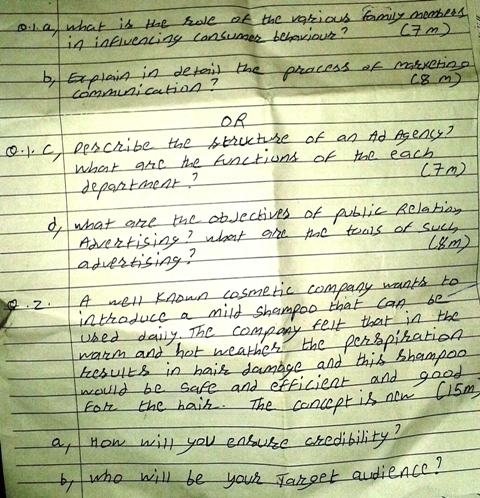 Q.1. a, what is the role of the various family members
in influencing consumer behaviour? (7 m)
b, Explain in detail the process of marketing
communication? (8 m)
OR
Q.1. c, Describe the structure of an Ad Agency?
what are the functions of the each
department? (7m)
d, what are the objectives of public Relation
Advertising? what are the tools of such
advertising? (8m)
Q.2. A well known cosmetic company wants to
introduce a mild shampoo that can be
used daily. The company felt that in the
warm and hot weather the perspiration
results in hair damage and this shampoo
would be safe and efficient and good
for the hair. The concept is new (15m
a, How will you ensure credibility?
b, who will be your Target audience?